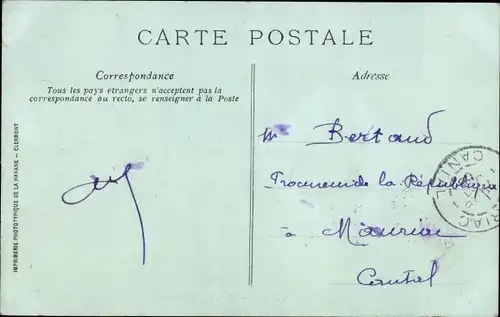 CARTE POSTALE
Correspondance
Tous les pays étrangers n'acceptent pas la
correspondance au recto, se renseigner à la Poste
Adresse
IMPRIMERIE PHOTOTYPIQUE DE LA PARDINE - CLERMONT
Mr Bertaud
Procureur de la République
à Mauriac
Cantal
CANTAL